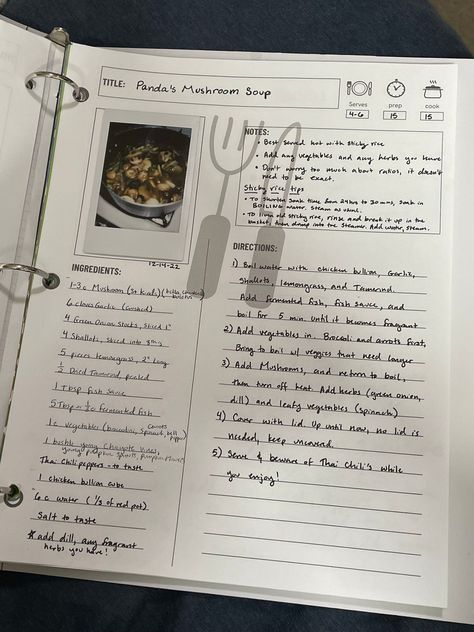 TITLE: Panda's Mushroom Soup
Serves prep cook
4-6 15 15
12-14-22
NOTES:
• Best served hot with sticky rice
• Add any vegetables and any herbs you have
• Don't worry too much about ratios, it doesn't
need to be exact.
Sticky rice tips
• To shorten soak time from 24hrs to 30 mins, soak in
BOILING water. Steam as usual.
• To liven old sticky rice, rinse and break it up in the
basket, then dump into the steamer. Add water, steam.
INGREDIENTS:
1-3 c Mushroom (3+ kinds)
6 cloves Garlic
4 Green Onion Stocks, sliced 1"
4 Shallots, sliced into
5 pieces lemongrass, 2" long
Dried Tamarind, peeled
1 Tbsp fish sauce
fermented fish
1 c vegetables (broccolini, spinach, bell
pepper)
Thai Chili peppers - to taste
1 chicken bullion cube
6 c water (1/3 of red pot)
Salt to taste
* add dill, any fragrant
herbs you have!
DIRECTIONS:
1) Boil water with chicken bullion, Garlic,
Shallots, lemongrass, and Tamarind.
Add fermented fish, fish sauce, and
boil for 5 min until it becomes fragrant
2) Add vegetables in. Brocoli and carrots first,
Bring to boil w/ veggies that need longer
3) Add Mushrooms, and return to boil,
then turn off heat. Add herbs (green onion,
dill) and leafy vegetables (spinach)
4) Cover with lid. Up until now, no lid is
needed, keep uncovered.
5) Serve & beware of Thai Chili's while
you enjoy!